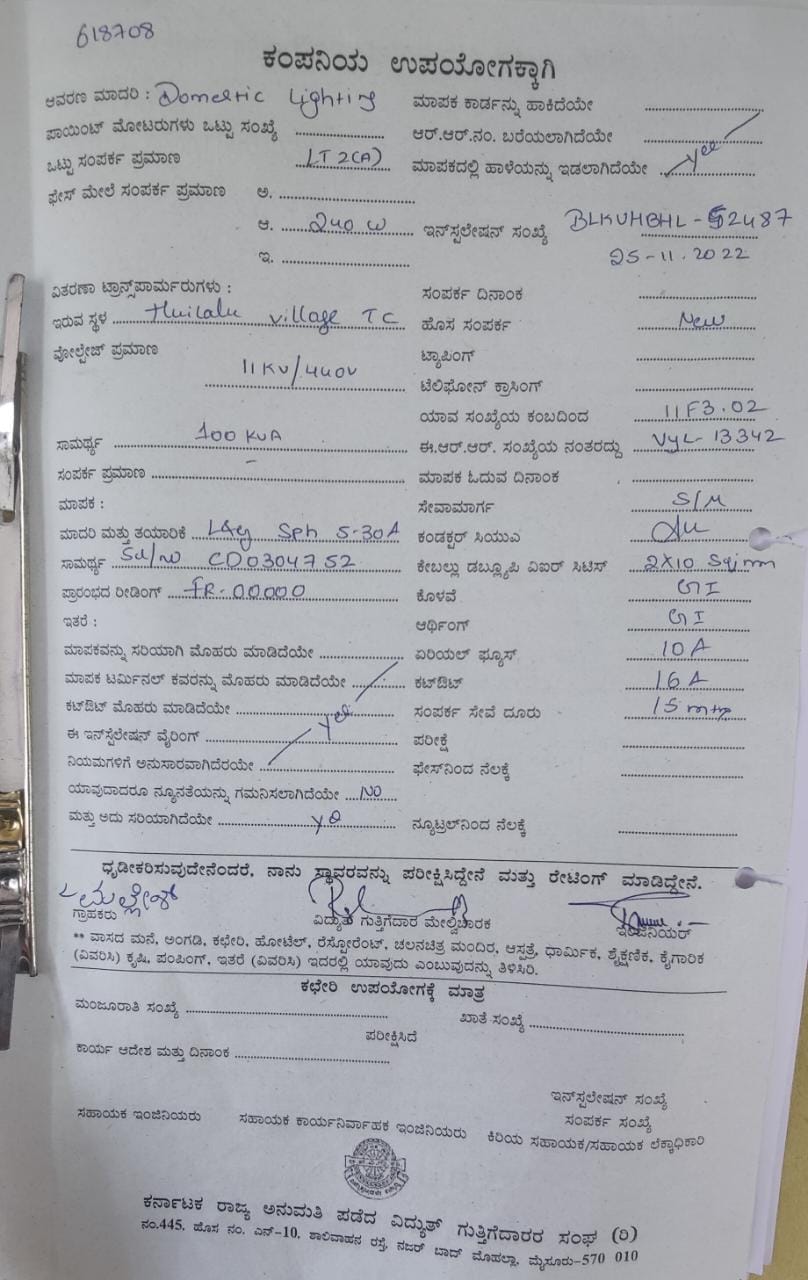 618708
ಕಂಪನಿಯ ಉಪಯೋಗಕ್ಕಾಗಿ
ಆವರಣ ಮಾದರಿ : Domestic Lighting ಮಾಪಕ ಕಾರ್ಡನ್ನು ಹಾಕಿದೆಯೇ
ಪಾಯಿಂಟ್ ಮೋಟರುಗಳು ಒಟ್ಟು ಸಂಖ್ಯೆ ಆರ್.ಆರ್.ನಂ. ಬರೆಯಲಾಗಿದೆಯೇ
ಒಟ್ಟು ಸಂಪರ್ಕ ಪ್ರಮಾಣ LT2(A) ಮಾಪಕದಲ್ಲಿ ಹಾಳೆಯನ್ನು ಇಡಲಾಗಿದೆಯೇ Yes
ಫೇಸ್ ಮೇಲೆ ಸಂಪರ್ಕ ಪ್ರಮಾಣ ಅ.
ಆ. 240 W ಇನ್‌ಸ್ಟಲೇಷನ್ ಸಂಖ್ಯೆ BLKUHBHL-52487
ಇ. 25-11.2022
ವಿತರಣಾ ಟ್ರಾನ್ಸ್‌ಪಾರ್ಮರುಗಳು : ಸಂಪರ್ಕ ದಿನಾಂಕ
ಇರುವ ಸ್ಥಳ Huilalu village TC ಹೊಸ ಸಂಪರ್ಕ New
ವೋಲ್ಟೇಜ್ ಪ್ರಮಾಣ 11KV/440V ಟ್ಯಾಪಿಂಗ್
ಟೆಲಿಫೋನ್ ಕ್ರಾಸಿಂಗ್
ಯಾವ ಸಂಖ್ಯೆಯ ಕಂಬದಿಂದ 11F3.02
ಸಾಮರ್ಥ್ಯ 100 KVA ಈ.ಆರ್.ಆರ್. ಸಂಖ್ಯೆಯ ನಂತರದ್ದು VYL-13342
ಸಂಪರ್ಕ ಪ್ರಮಾಣ – ಮಾಪಕ ಓದುವ ದಿನಾಂಕ
ಮಾಪಕ : ಸೇವಾಮಾರ್ಗ S/M
ಮಾದರಿ ಮತ್ತು ತಯಾರಿಕೆ L&G Sph 5-30A ಕಂಡಕ್ಟರ್ ಸಿಯುಎ
ಸಾಮರ್ಥ್ಯ Sl/No CD0304752 ಕೇಬಲ್ಲು ಡಬ್ಲ್ಯೂಪಿ ವಿಐರ್ ಸಿಟಿಸ್ 2X10 Sqmm
ಪ್ರಾರಂಭದ ರೀಡಿಂಗ್ FR-00000 ಕೊಳವೆ GI
ಇತರೆ : ಆರ್ಥಿಂಗ್ GI
ಮಾಪಕವನ್ನು ಸರಿಯಾಗಿ ಮೊಹರು ಮಾಡಿದೆಯೇ ಏರಿಯಲ್ ಫ್ಯೂಸ್ 10A
ಮಾಪಕ ಟರ್ಮಿನಲ್ ಕವರನ್ನು ಮೊಹರು ಮಾಡಿದೆಯೇ ಕಟ್‌ಔಟ್ 16A
ಕಟ್‌ಔಟ್ ಮೊಹರು ಮಾಡಿದೆಯೇ Yes ಸಂಪರ್ಕ ಸೇವೆ ದೂರು 15 mtr
ಈ ಇನ್‌ಸ್ಟಲೇಷನ್ ವೈರಿಂಗ್ ಪರೀಕ್ಷೆ
ನಿಯಮಗಳಿಗೆ ಅನುಸಾರವಾಗಿದೆರಯೇ ಫೇಸ್‌ನಿಂದ ನೆಲಕ್ಕೆ
ಯಾವುದಾದರೂ ನ್ಯೂನತೆಯನ್ನು ಗಮನಿಸಲಾಗಿದೆಯೇ NO
ಮತ್ತು ಅದು ಸರಿಯಾಗಿದೆಯೇ ನ್ಯೂಟ್ರಲ್‌ನಿಂದ ನೆಲಕ್ಕೆ
ಧೃಡೀಕರಿಸುವುದೇನೆಂದರೆ, ನಾನು ಸ್ಥಾವರವನ್ನು ಪರೀಕ್ಷಿಸಿದ್ದೇನೆ ಮತ್ತು ರೇಟಿಂಗ್ ಮಾಡಿದ್ದೇನೆ.
ಗ್ರಾಹಕರು ವಿದ್ಯುತ್ ಗುತ್ತಿಗೆದಾರ ಮೇಲ್ವಿಚಾರಕ ಇಂಜಿನಿಯರ್
** ವಾಸದ ಮನೆ, ಅಂಗಡಿ, ಕಛೇರಿ, ಹೋಟೆಲ್, ರೆಸ್ಟೋರೆಂಟ್, ಚಲನಚಿತ್ರ ಮಂದಿರ, ಆಸ್ಪತ್ರೆ, ಧಾರ್ಮಿಕ, ಶೈಕ್ಷಣಿಕ, ಕೈಗಾರಿಕ
(ವಿವರಿಸಿ) ಕೃಷಿ, ಪಂಪಿಂಗ್, ಇತರೆ (ವಿವರಿಸಿ) ಇದರಲ್ಲಿ ಯಾವುದು ಎಂಬುವುದನ್ನು ತಿಳಿಸಿರಿ.
ಕಛೇರಿ ಉಪಯೋಗಕ್ಕೆ ಮಾತ್ರ
ಮಂಜೂರಾತಿ ಸಂಖ್ಯೆ ಖಾತೆ ಸಂಖ್ಯೆ
ಪರೀಕ್ಷಿಸಿದೆ
ಕಾರ್ಯ ಆದೇಶ ಮತ್ತು ದಿನಾಂಕ
ಇನ್‌ಸ್ಟಲೇಷನ್ ಸಂಖ್ಯೆ
ಸಂಪರ್ಕ ಸಂಖ್ಯೆ
ಸಹಾಯಕ ಇಂಜಿನಿಯರು ಸಹಾಯಕ ಕಾರ್ಯನಿರ್ವಾಹಕ ಇಂಜಿನಿಯರು ಕಿರಿಯ ಸಹಾಯಕ/ಸಹಾಯಕ ಲೆಕ್ಕಾಧಿಕಾರಿ
ಕರ್ನಾಟಕ ರಾಜ್ಯ ಅನುಮತಿ ಪಡೆದ ವಿದ್ಯುತ್ ಗುತ್ತಿಗೆದಾರರ ಸಂಘ (ರಿ)
ನಂ.445, ಹೊಸ ನಂ. ಎನ್-10, ಶಾಲಿವಾಹನ ರಸ್ತೆ, ನಜರ್ ಬಾದ್ ಮೊಹಲ್ಲಾ, ಮೈಸೂರು-570 010